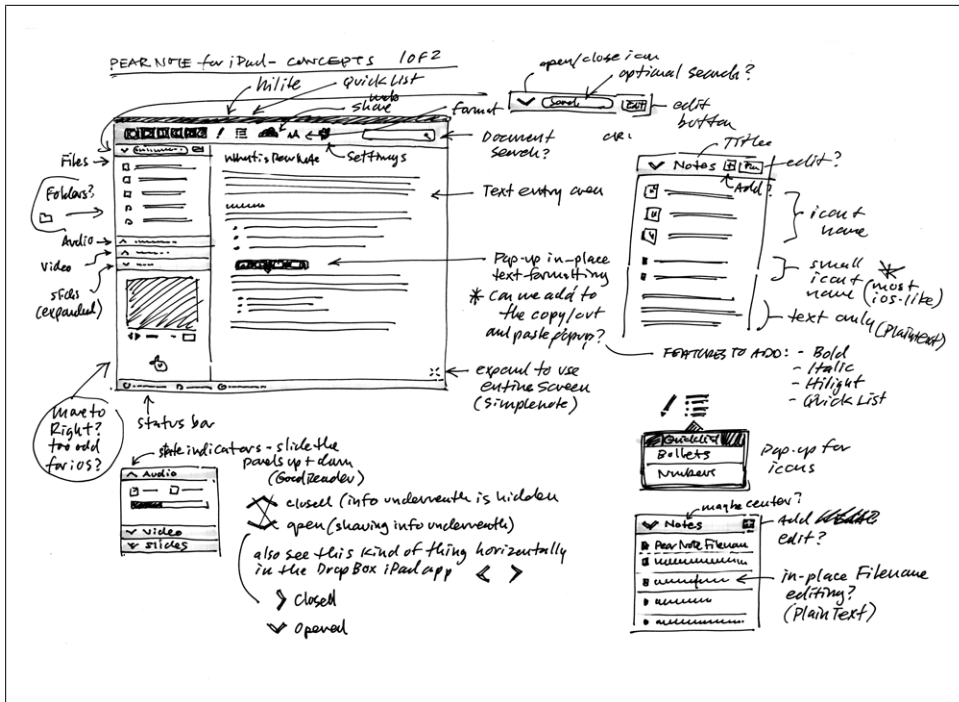 PEAR NOTE for iPad - CONCEPTS 1 of 2
open/close icon
optional search?
hilite
Quick List
web
share
format
Search
Edit
edit
button
Document
search?
OR:
Settings
What is Pear Note
Files
Folders?
Text entry area
Audio
Video
slides
(expanded)
Pop-up in-place
text formatting
* Can we add to
the copy/cut
and paste popup?
expand to use
entire screen
(simplenote)
move to
Right?
too odd
for iOS?
status bar
Title
Notes
edit?
Add?
icon +
name
small
icon +
name
(most
ios-like)
text only
(PlainText)
FEATURES TO ADD: - Bold
- Italic
- Hilight
- Quick List
Quicklist
Bullets
Numbers
Pop-up for
icons
state indicators - slide the
panels up + down
(GoodReader)
Audio
Video
Slides
closed (info underneath is hidden
open (showing info underneath)
also see this kind of thing horizontally
in the DropBox iPad app < >
Closed
Opened
maybe center?
Notes
Add
edit?
Pear Note Filename
in-place Filename
editing?
(PlainText)